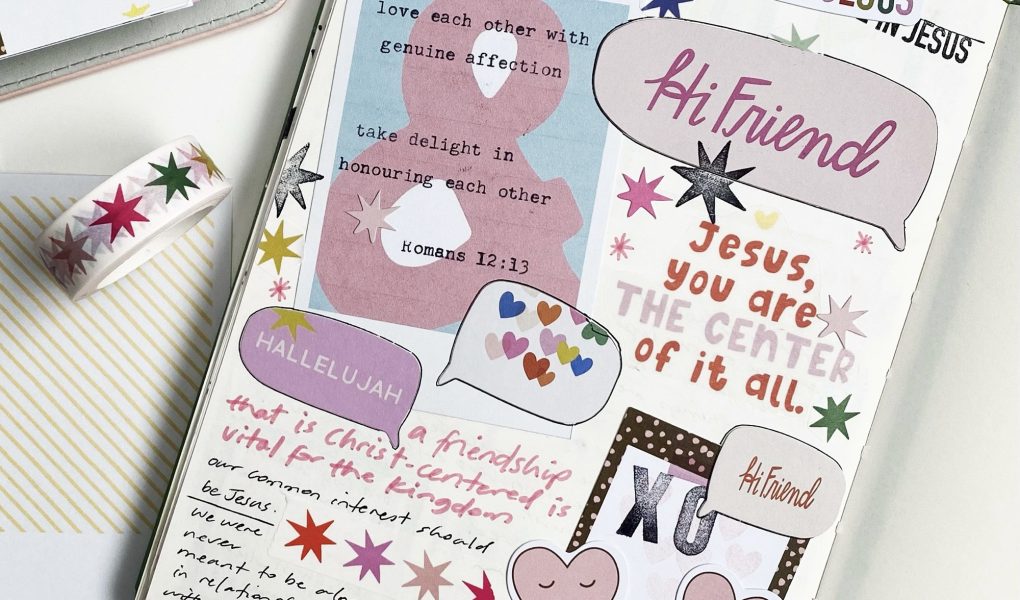 love each other with
genuine affection
take delight in
honouring each other
Romans 12:13
IN JESUS
Hi Friend
Jesus,
you are
THE CENTER
of it all.
HALLELUJAH
a friendship
that is Christ-centered is
vital for the kingdom
our common interest should
be Jesus.
we were
never
meant to be
in
XO
Hi Friend